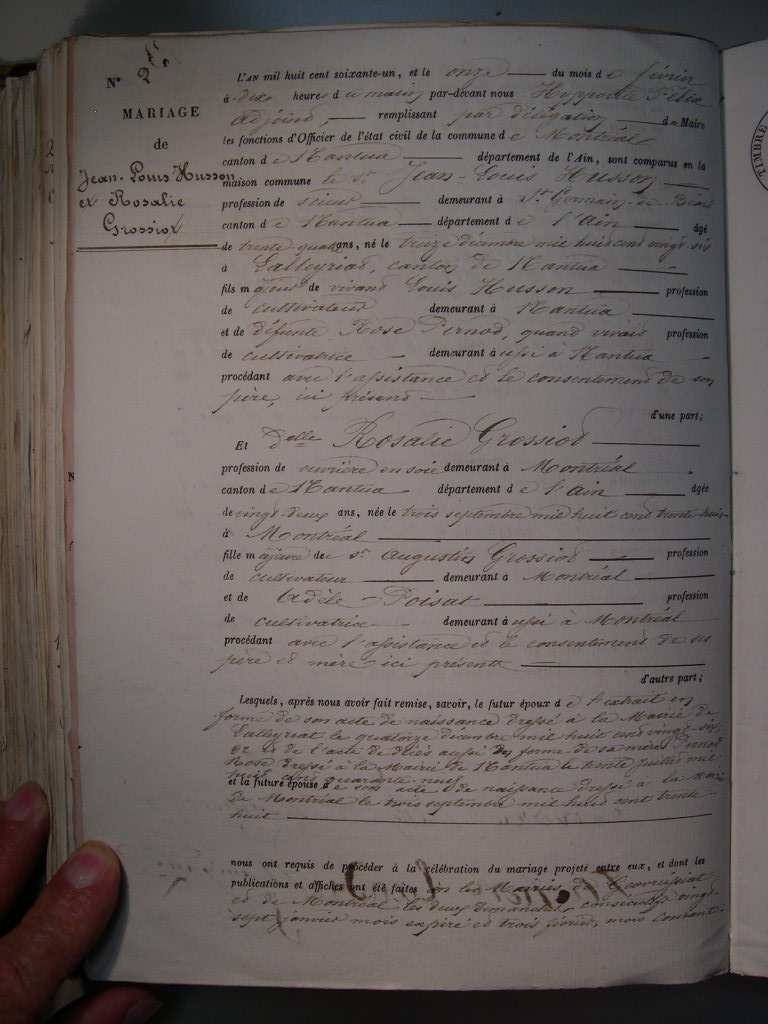 N° 2
MARIAGE
de
Jean-Louis Husson
et Rosalie
Grossiot
L'AN mil huit cent soixante-un, et le onze du mois de février
à dix heures du matin par-devant nous Hyppolite
adjoint, remplissant par délégation de Maire
les fonctions d'Officier de l'état civil de la commune de Montréal
canton de Nantua département de l'Ain, sont comparus en la
maison commune le Sr Jean-Louis Husson
profession de scieur demeurant à St Germain-de-Béard
canton de Nantua département de l'Ain âgé
de trente quatre ans, né le treize décembre mil huit cent vingt-six
à Lalleyriat, canton de Nantua
fils majeur de vivant Louis Husson profession
de cultivateur demeurant à Nantua
et de défunte Rose Pernod, quand vivait profession
de cultivatrice demeurant à ussi à Nantua
procédant avec l'assistance et le consentement de son
père, ici présent
d'une part;
Et Delle Rosalie Grossiot
profession de ouvrière en soie demeurant à Montréal
canton de Nantua département de l'Ain âgée
de vingt-deux ans, née le trois septembre mil huit cent trente-huit
à Montréal
fille majeure de Sr Augustin Grossiot profession
de cultivateur demeurant à Montréal
et de Adèle Poisat profession
de cultivatrice demeurant à ussi à Montréal
procédant avec l'assistance et le consentement de ses
père et mère ici présents
d'autre part;
Lesquels, après nous avoir fait remise, savoir, le futur époux de l'extrait en
forme de son acte de naissance dressé à la Mairie de
Lalleyriat le quatorze décembre mil huit cent vingt-six
et de l'acte de décès aussi en forme de sa mère Pernod
Rose dressé à la Mairie de Nantua le trente juillet mil
huit cent quarante neuf
et la future épouse de son acte de naissance dressé à la Mairie
de Montréal le trois septembre mil huit cent trente
huit
nous ont requis de procéder à la célébration du mariage projeté entre eux, et dont les
publications et affiches ont été faites aux Mairies
et de Montréal les deux dimanches consécutifs vingt-
sept janvier mois expiré et trois février, mois courant
TIMBRE